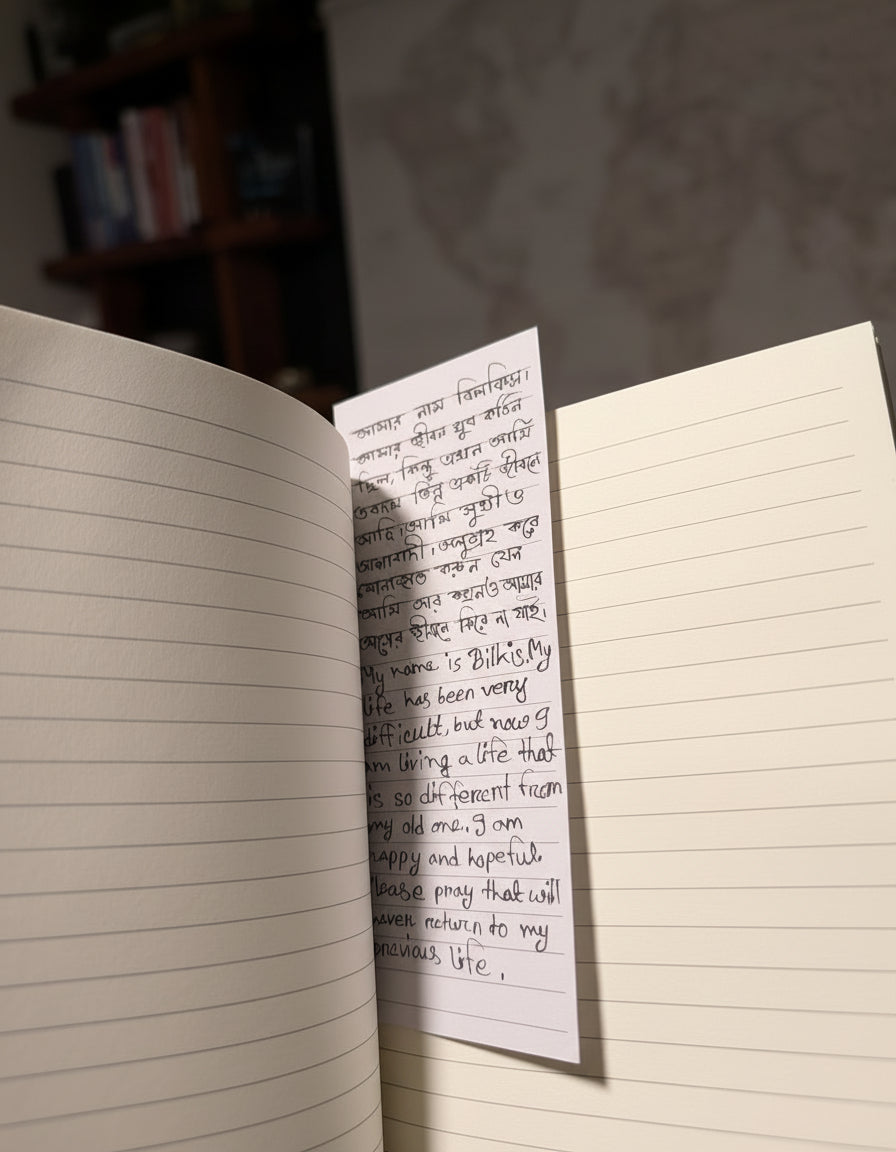 আমার নাম বিলকিস।
আমার জীবন খুব কঠিন
ছিল, কিন্তু এখন আমি
একদম ভিন্ন একটি জীবনে
আছি। আমি সুখী ও
আশাবাদী। অনুগ্রহ করে
মোনাজাত করুন যেন
আমি আর কখনও আমার
আগের জীবনে ফিরে না যাই।
My name is Bilkis. My
life has been very
difficult, but now I
am living a life that
is so different from
my old one. I am
happy and hopeful.
Please pray that will
never return to my
previous life.